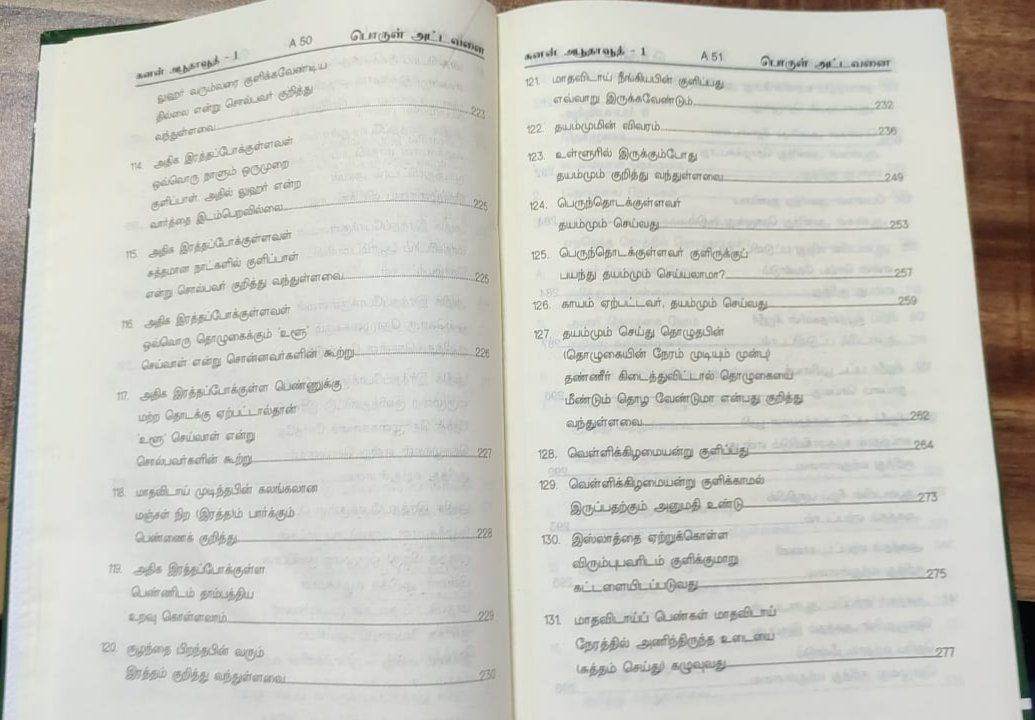 சுனன் அபூதாவூத் - 1 A 50 பொருள் அட்டவணை
லுஹர் வரும்வரை குளிக்கவேண்டிய
தில்லை என்று சொல்பவர் குறித்து
வந்துள்ளவை 223
114. அதிக இரத்தப்போக்குள்ளவள்
ஒவ்வொரு நாளும் ஒருமுறை
குளிப்பாள். அதில் லுஹர் என்ற
வார்த்தை இடம்பெறவில்லை 225
115. அதிக இரத்தப்போக்குள்ளவள்
சுத்தமான நாட்களில் குளிப்பாள்
என்று சொல்பவர் குறித்து வந்துள்ளவை 225
116. அதிக இரத்தப்போக்குள்ளவள்
ஒவ்வொரு தொழுகைக்கும் 'உளூ'
செய்வாள் என்று சொன்னவர்களின் கூற்று 226
117. அதிக இரத்தப்போக்குள்ள பெண்ணுக்கு
மற்ற தொடக்கு ஏற்பட்டால்தான்
'உளூ' செய்வாள் என்று
சொல்பவர்களின் கூற்று 227
118. மாதவிடாய் முடிந்தபின் கலங்கலான
மஞ்சள் நிற (இரத்த)ம் பார்க்கும்
பெண்ணைக் குறித்து 228
119. அதிக இரத்தப்போக்குள்ள
பெண்ணிடம் தாம்பத்திய
உறவு கொள்ளலாம் 229
120. குழந்தை பிறந்தபின் வரும்
இரத்தம் குறித்து வந்துள்ளவை 230
சுனன் அபூதாவூத் - 1 A 51 பொருள் அட்டவணை
121. மாதவிடாய் நீங்கியபின் குளிப்பது
எவ்வாறு இருக்கவேண்டும் 232
122. தயம்முமின் விவரம் 236
123. உள்ளூரில் இருக்கும்போது
தயம்மும் குறித்து வந்துள்ளவை 249
124. பெருந்தொடக்குள்ளவர்
தயம்மும் செய்வது 253
125. பெருந்தொடக்குள்ளவர் குளிருக்குப்
பயந்து தயம்மும் செய்யலாமா? 257
126. காயம் ஏற்பட்டவர், தயம்மும் செய்வது 259
127. தயம்மும் செய்து தொழுதபின்
(தொழுகையின் நேரம் முடியும் முன்பு)
தண்ணீர் கிடைத்துவிட்டால் தொழுகையை
மீண்டும் தொழ வேண்டுமா என்பது குறித்து
வந்துள்ளவை 262
128. வெள்ளிக்கிழமையன்று குளிப்பது 264
129. வெள்ளிக்கிழமையன்று குளிக்காமல்
இருப்பதற்கும் அனுமதி உண்டு 273
130. இஸ்லாத்தை ஏற்றுக்கொள்ள
விரும்புபவரிடம் குளிக்குமாறு
கட்டளையிடப்படுவது 275
131. மாதவிடாய்ப் பெண்கள் மாதவிடாய்
நேரத்தில் அணிந்திருந்த உடையை
(சுத்தம் செய்து) கழுவுவது 277